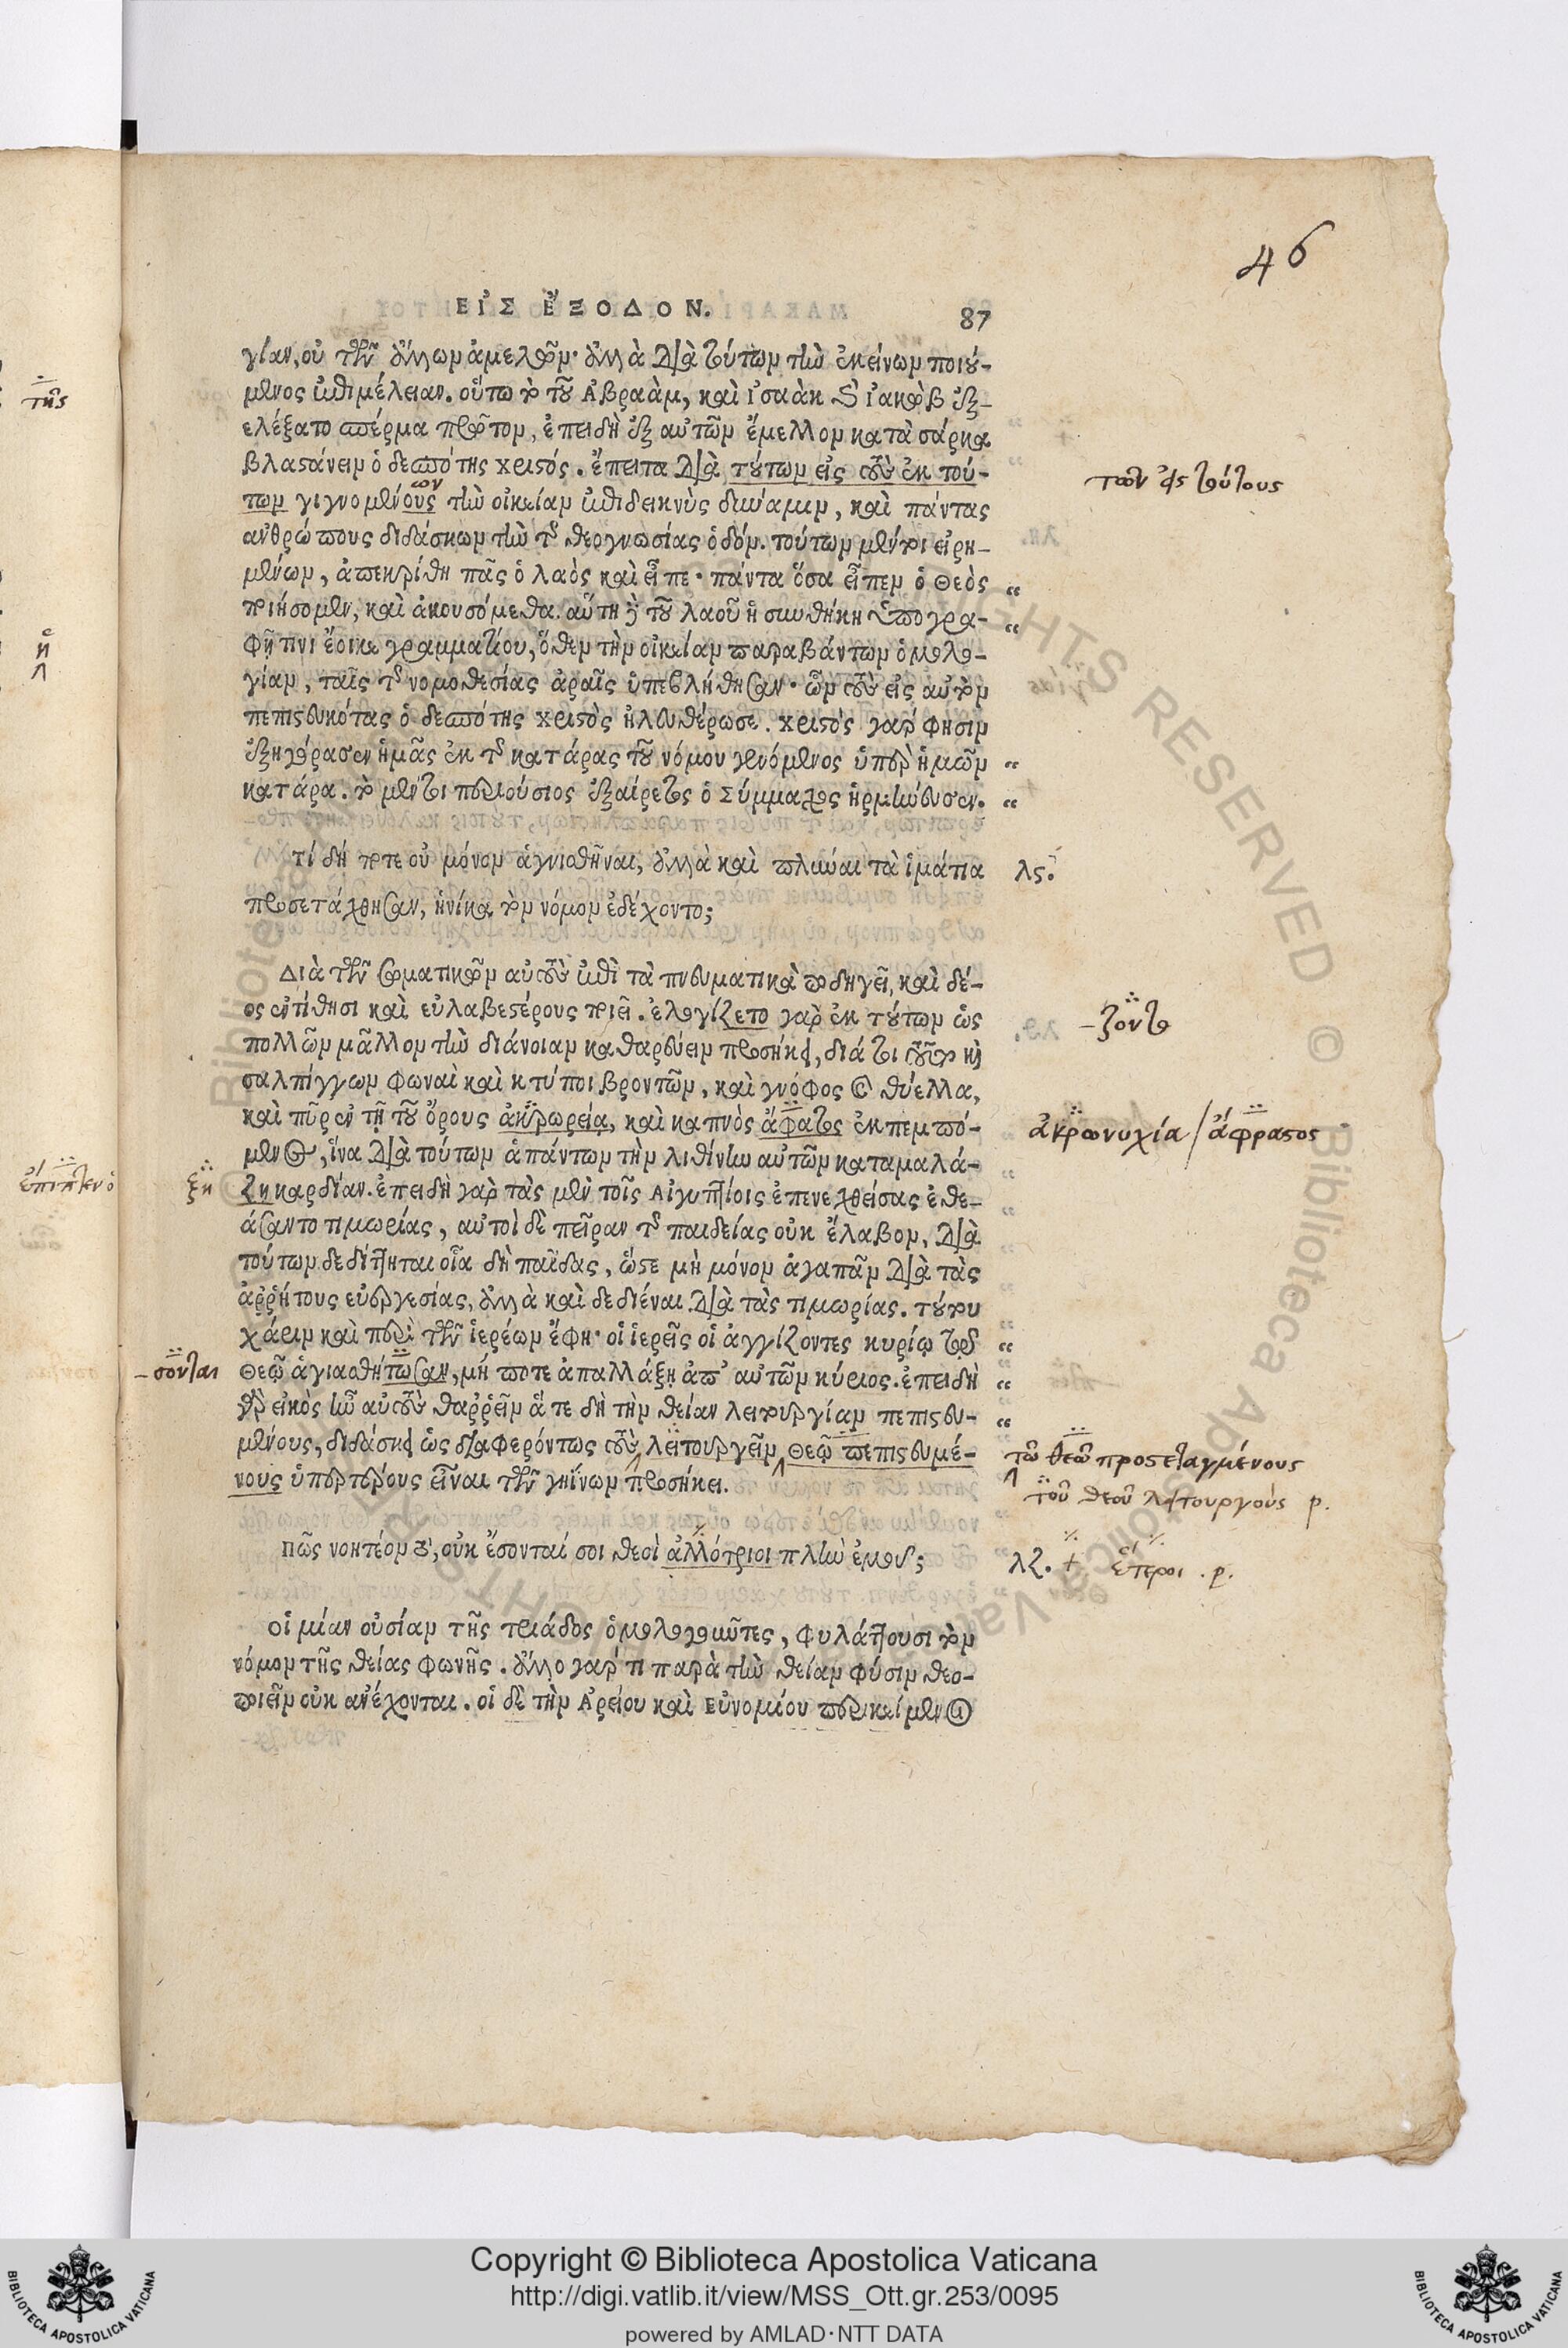 46
ΕἸΣ ἜΞΟΔΟΝ. 87
γίαν, οὐ τῶν ἄλλων ἀμελῶν· ἀλλὰ διὰ τούτων τὴν ἐκείνων ποιού-
μενος ἐπιμέλειαν. οὕτω τὸ τοῦ Ἀβραὰμ, καὶ Ἰσαὰκ καὶ Ἰακὼβ ἐξ-
ελέξατο σπέρμα πρῶτον, ἐπειδὴ ἐξ αὐτῶν ἔμελλον κατὰ σάρκα
βλαστάνειν ὁ δεσπότης χριστός. ἔπειτα διὰ τούτων εἰς τοὺς ἐκ τού-
των εἰς τούτους
ων
των γιγνομένους τὴν οἰκείαν ἐπιδεικνὺς δύναμιν, καὶ πάντας
ἀνθρώπους διδάσκων τὴν τῆς θεογνωσίας ὁδόν. τούτων μέντοι εἰρη-
μένων, ἀπεκρίθη πᾶς ὁ λαὸς καὶ εἶπε· πάντα ὅσα εἶπεν ὁ Θεὸς “
ποιήσομεν, καὶ ἀκουσόμεθα. αὕτη δὲ τοῦ λαοῦ ἡ συνθήκη ὑπογρα- “
φῇ τινι ἔοικε γραμματίου, ὅθεν τὴν οἰκείαν παραβάντων ὁμολο-
γίαν, ταῖς τῆς νομοθεσίας ἀραῖς ὑπεβλήθησαν· ὧν τοὺς εἰς αὐτὸν
πεπιστευκότας ὁ δεσπότης χριστὸς ἠλευθέρωσε. χριστὸς γάρ φησιν
ἐξηγόρασεν ἡμᾶς ἐκ τῆς κατάρας τοῦ νόμου γενόμενος ὑπὲρ ἡμῶν “
κατάρα. τὸ μέντοι περιούσιος ἐξαίρετος ὁ Σύμμαχος ἡρμήνευσεν. “
τί δή ποτε οὐ μόνον ἁγνισθῆναι, ἀλλὰ καὶ πλῦναι τὰ ἱμάτια λς.
προσετάχθησαν, ἡνίκα τὸν νόμον ἐδέχοντο;
Διὰ τῶν σωματικῶν αὐτοὺς ἐπὶ τὰ πνευματικὰ ποδηγεῖ, καὶ δέ-
ος ἐντίθησι καὶ εὐλαβεστέρους ποιεῖ. ἐλογίζετο γὰρ ἐκ τούτων ὡς
-ζοντο
πολλῶν μᾶλλον τὴν διάνοιαν καθαρεύειν προσήκει, διά τοι τοῦτο καὶ
σαλπίγγων φωναὶ καὶ κτύποι βροντῶν, καὶ γνόφος καὶ θύελλα,
καὶ πῦρ ἐν τῇ τοῦ ὄρους ἀκρωρείᾳ, καὶ καπνὸς ἄφατος ἐκπεμπό-
ἀκρωνυχία / ἄφραστος
μενος, ἵνα διὰ τούτων ἁπάντων τὴν λιθίνην αὐτῶν καταμαλά-
ξῃ
ζῃ καρδίαν. ἐπειδὴ γὰρ τὰς μὲν τοῖς Αἰγυπτίοις ἐπενεχθείσας ἐθε-
άσαντο τιμωρίας, αὐτοὶ δὲ πεῖραν τῆς παιδείας οὐκ ἔλαβον, διὰ
τούτων δεδίττηται οἷα δὴ παῖδας, ὥστε μὴ μόνον ἀγαπᾶν διὰ τὰς
ἀῤῥήτους εὐεργεσίας, ἀλλὰ καὶ δεδιέναι διὰ τὰς τιμωρίας. τούτου
χάριν καὶ περὶ τῶν ἱερέων ἔφη· οἱ ἱερεῖς οἱ ἀγγίζοντες κυρίῳ τῷ “
-σονται
Θεῷ ἁγιασθήτωσαν, μή ποτε ἀπαλλάξῃ ἀπ’ αὐτῶν κύριος. ἐπειδὴ “
γὰρ εἰκὸς ἦν αὐτοὺς θαῤῥεῖν ἅτε δὴ τὴν θείαν λειτουργίαν πεπιστευ- “
μένους, διδάσκει ὡς διαφερόντως τοὺς λειτουργεῖν Θεῷ πεπιστευμέ-
τῶ θεῶ προστεταγμένους
νους ὑπερτέρους εἶναι τῶν γηίνων προσήκει.
τοῦ θεοῦ λειτουργοὺς ρ.
πῶς νοητέον τό, οὐκ ἔσονταί σοι θεοὶ ἀλλότριοι πλὴν ἐμοῦ; λζ. + ἕτεροι . ρ.
Οἱ μίαν οὐσίαν τῆς τριάδος ὁμολογοῦντες, φυλάττουσι τὸν
νόμον τῆς θείας φωνῆς. ἄλλο γάρ τι παρὰ τὴν θείαν φύσιν θεο-
ποιεῖν οὐκ ἀνέχονται. οἱ δὲ τὴν Ἀρείου καὶ Εὐνομίου περικείμενοι
τῆς
Copyright © Biblioteca Apostolica Vaticana
http://digi.vatlib.it/view/MSS_Ott.gr.253/0095
powered by AMLAD·NTT DATA
BIBLIOTECA APOSTOLICA VATICANA
BIBLIOTECA APOSTOLICA VATICANA